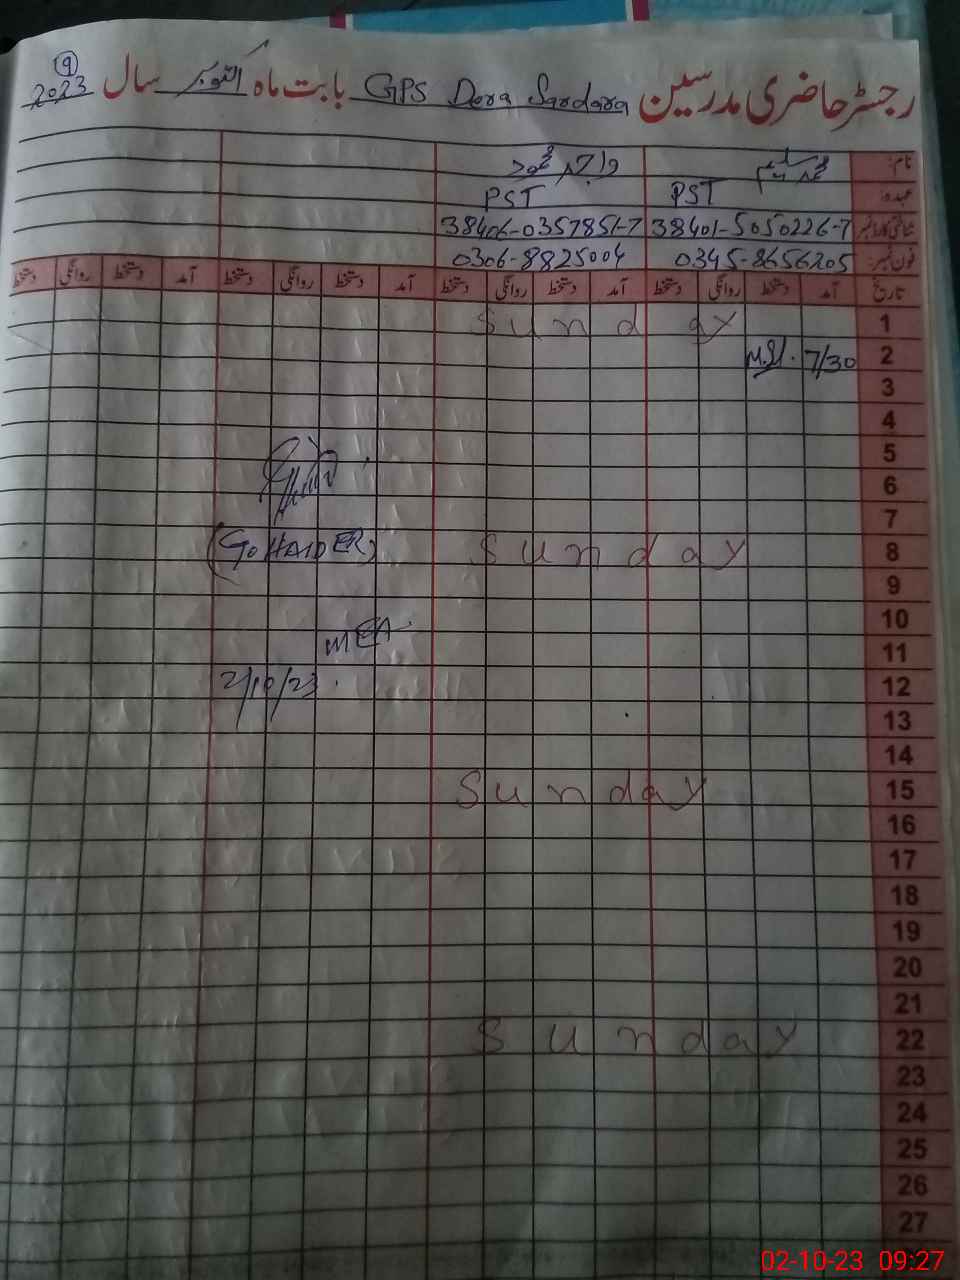 رجسٹر حاضری مدرسین GPS Dera Sardara بابت ماہ اکتوبر سال 2023
9
نام: محمد سلیم
عہدہ: PST PST
شناختی کارڈ نمبر 38401-5050226-7 38406-0357851-7
فون نمبر: 0345-8656205 0306-8825004
تاریخ آمد دستخط روانگی دستخط آمد دستخط روانگی دستخط آمد دستخط روانگی دستخط آمد دستخط روانگی دستخط
1 Sunday
2 7/30
3
4
5
6
7
8 Sunday
(GO HAIDER)
9
10
11
MEA
12
2/10/23
13
14
15 Sunday
16
17
18
19
20
21
22 Sunday
23
24
25
26
27
02-10-23 09:27